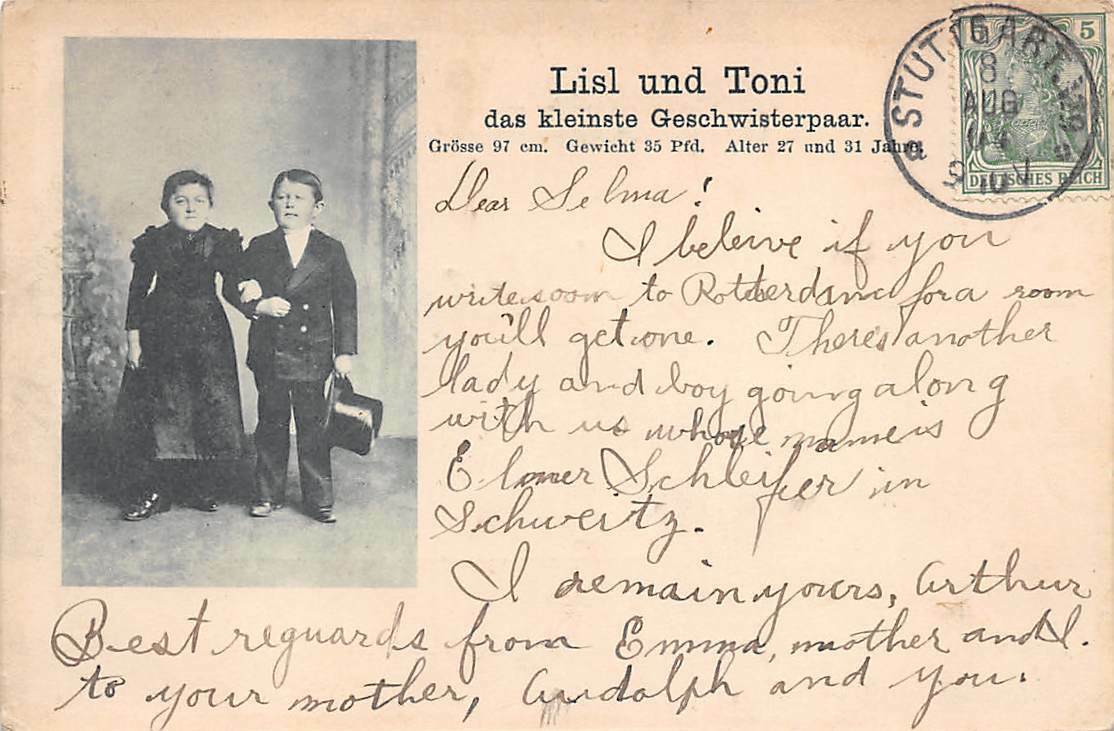 Lisl und Toni
das kleinste Geschwisterpaar.
Grösse 97 cm. Gewicht 35 Pfd. Alter 27 und 31 Jahre.
STUTTGART
8
AUG
04
5
DEUTSCHES REICH
Dear Selma!
I beleive if you
write soon to for a room
you'll get one. There's another
lady and boy going along
with us whose name is
Elmer Schleifer in
Schweitz.
I remain yours, Arthur
Best reguards from Emma, mother and I.
to your mother, and you.